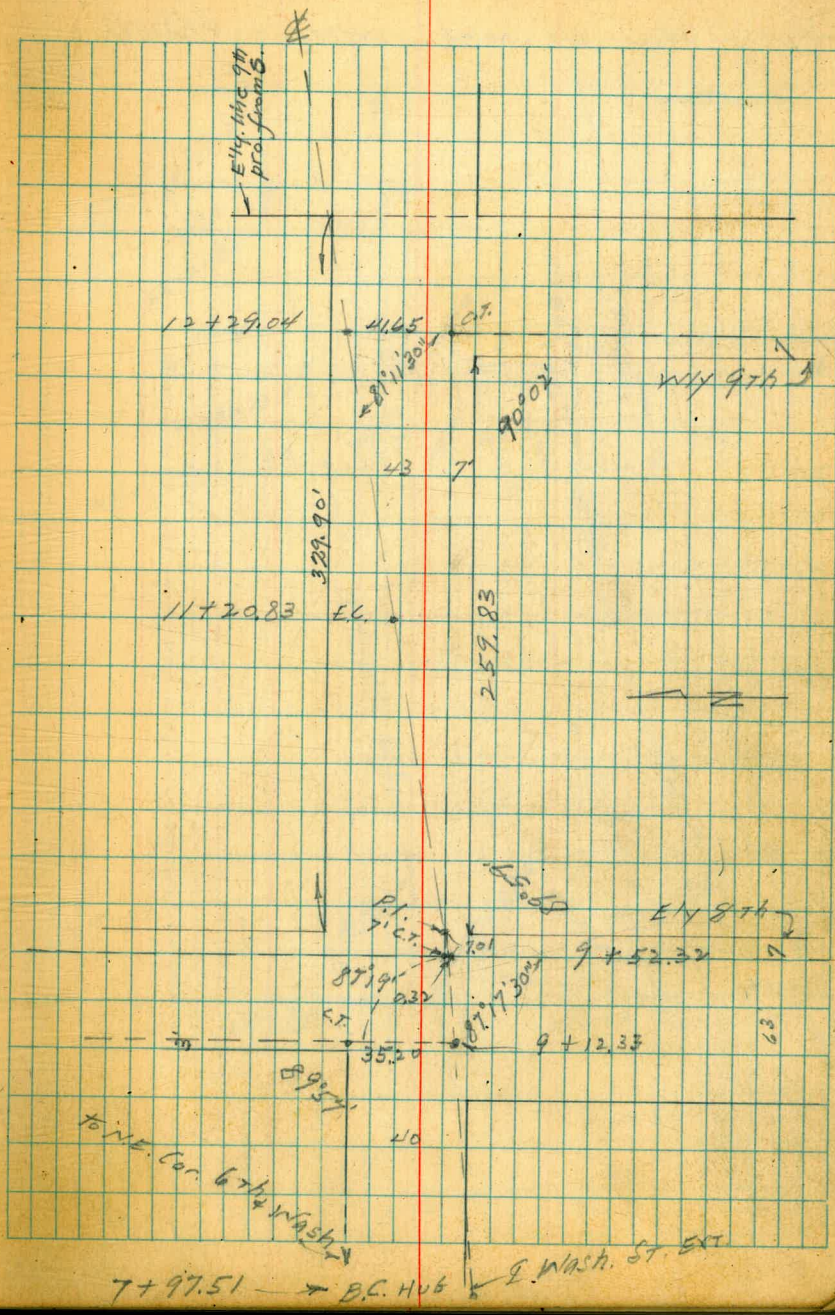 ℄
E'ly. line 9th
pro. from S.
12+29.04
41.65
C.T.
81°11'30"
7
W'ly 9th
90°02'
43
7'
329.90'
259.83
11+20.83
E.C.
N
89°59'
P.I.
7' C.T.
7.01
E'ly 8th
9+52.32
7
87°19'
0.32
87°17'30"
C.T.
3'
35.20
9+12.33
63
89°57'
40
To N.E. Cor. 6th & Wash.
7+97.51
B.C. Hub
Wash. St. Ext